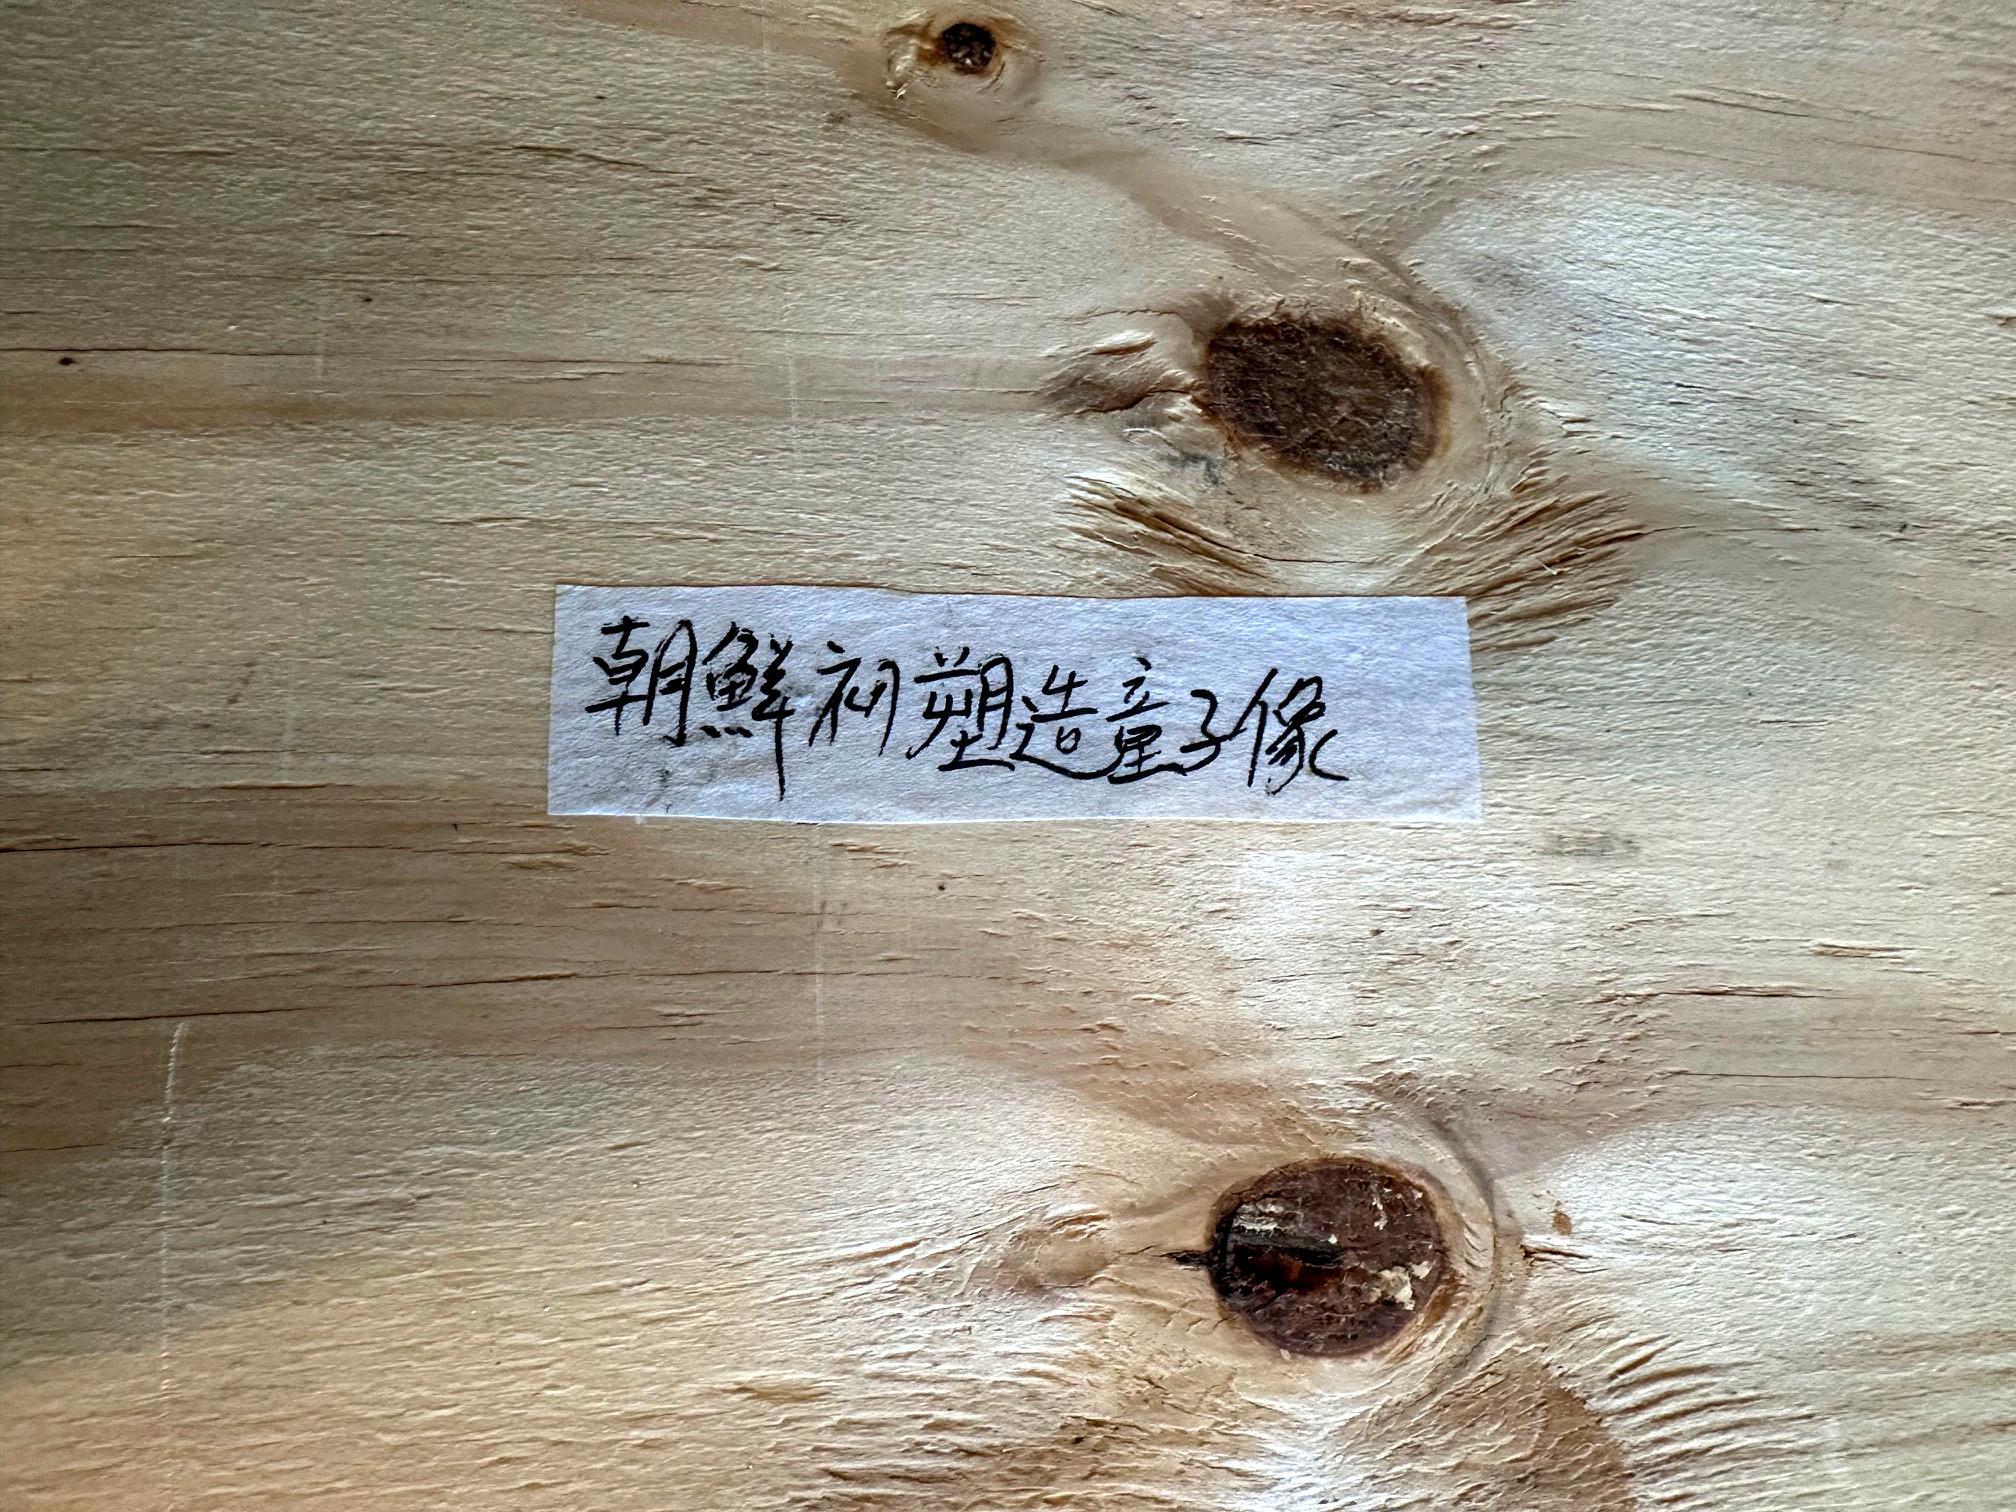 朝鮮初塑造童子像